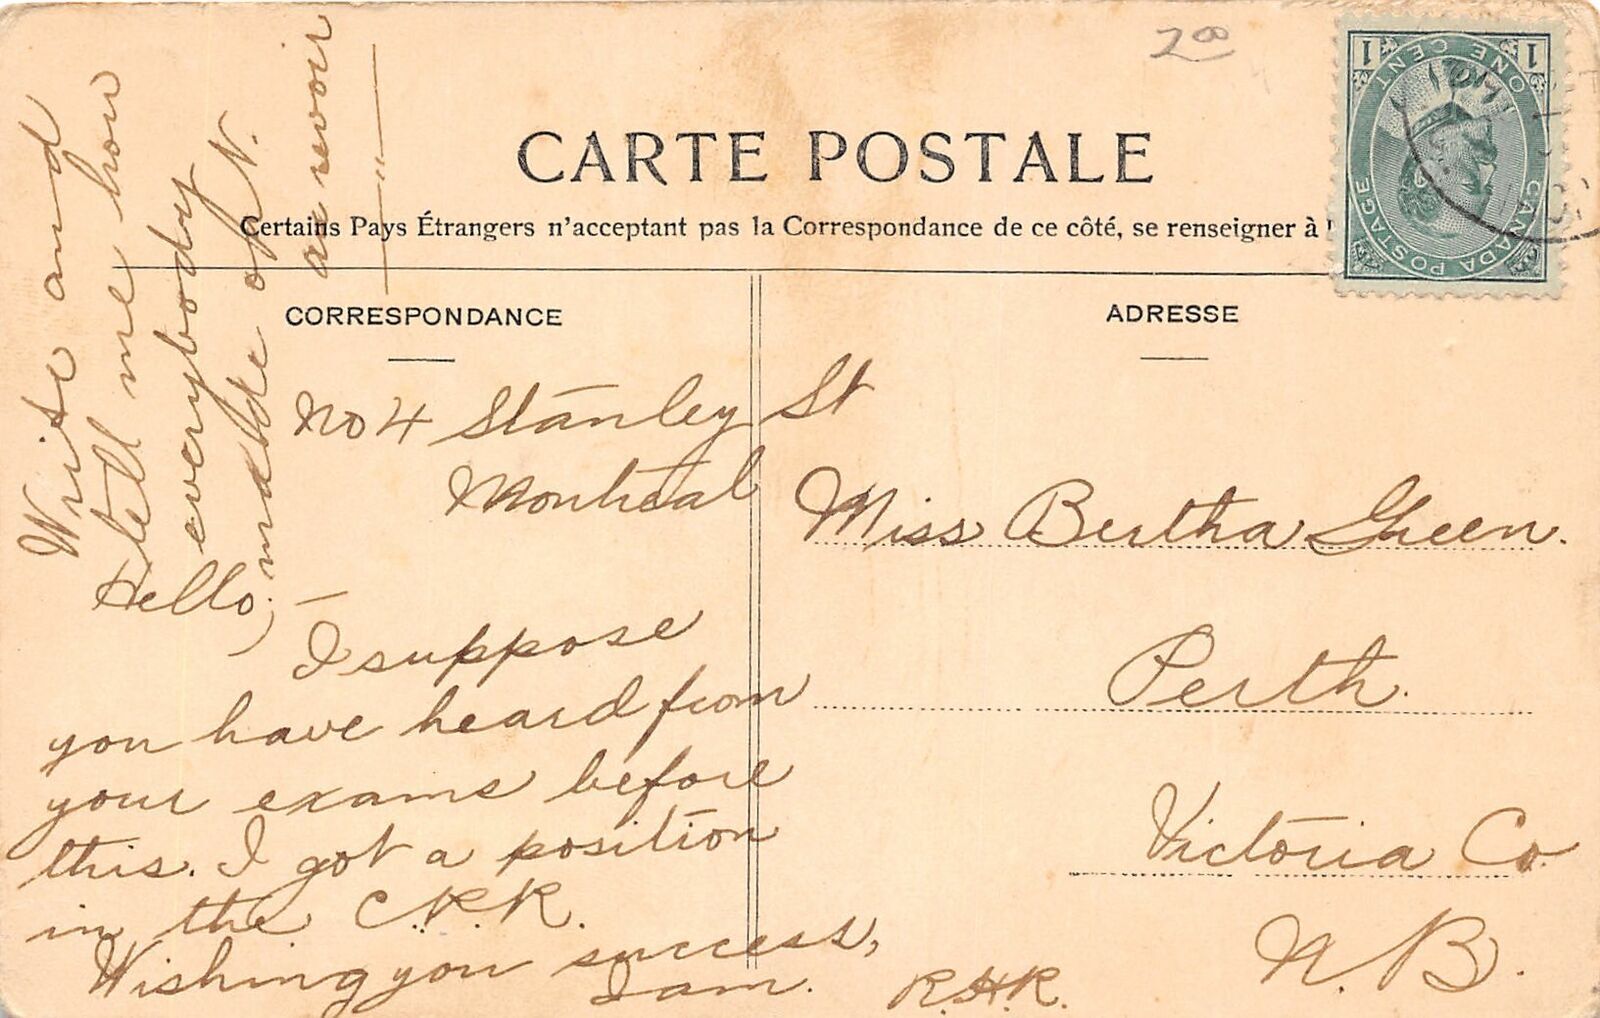 2.00
CARTE POSTALE
Certains Pays Étrangers n'acceptent pas la Correspondance de ce côté, se renseigner à
1 ONE CENT 1
CANADA POSTAGE
CORRESPONDANCE
ADRESSE
No 4 Stanley St
Montreal
Hello; —
I suppose
you have heard from
your exams before
this. I got a position
in the C.R.R.
Wishing you success,
I am.
R.H.R.
Write and
tell me how
everybody
of N.
au revoir
Miss Bertha Green.
Perth.
Victoria Co.
N.B.